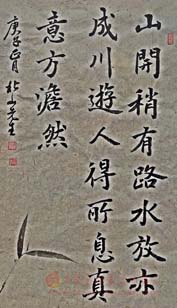 山開稍有路水放亦
成川遊人得所息真
意方澹然
庚子